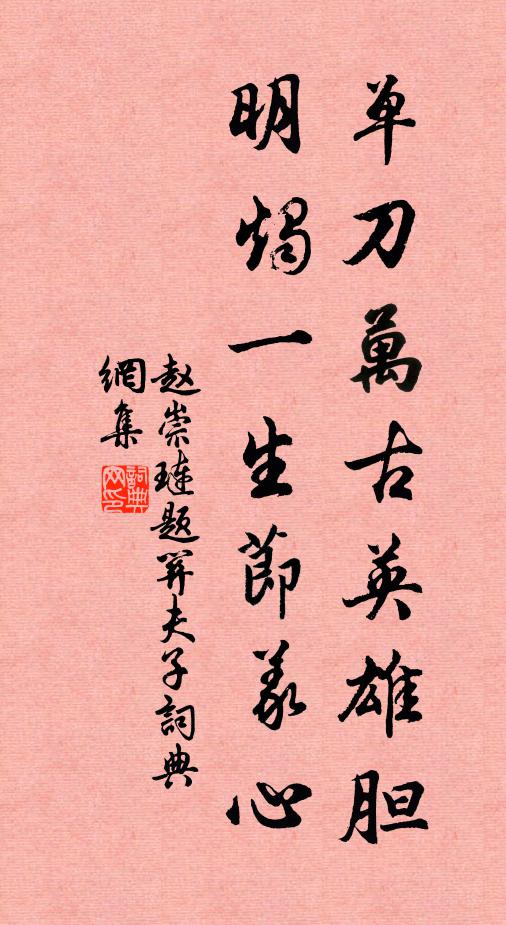 单刀萬古英雄胆
明燭一生節義心
赵崇璉题関夫子詞典
網集
詞典网印